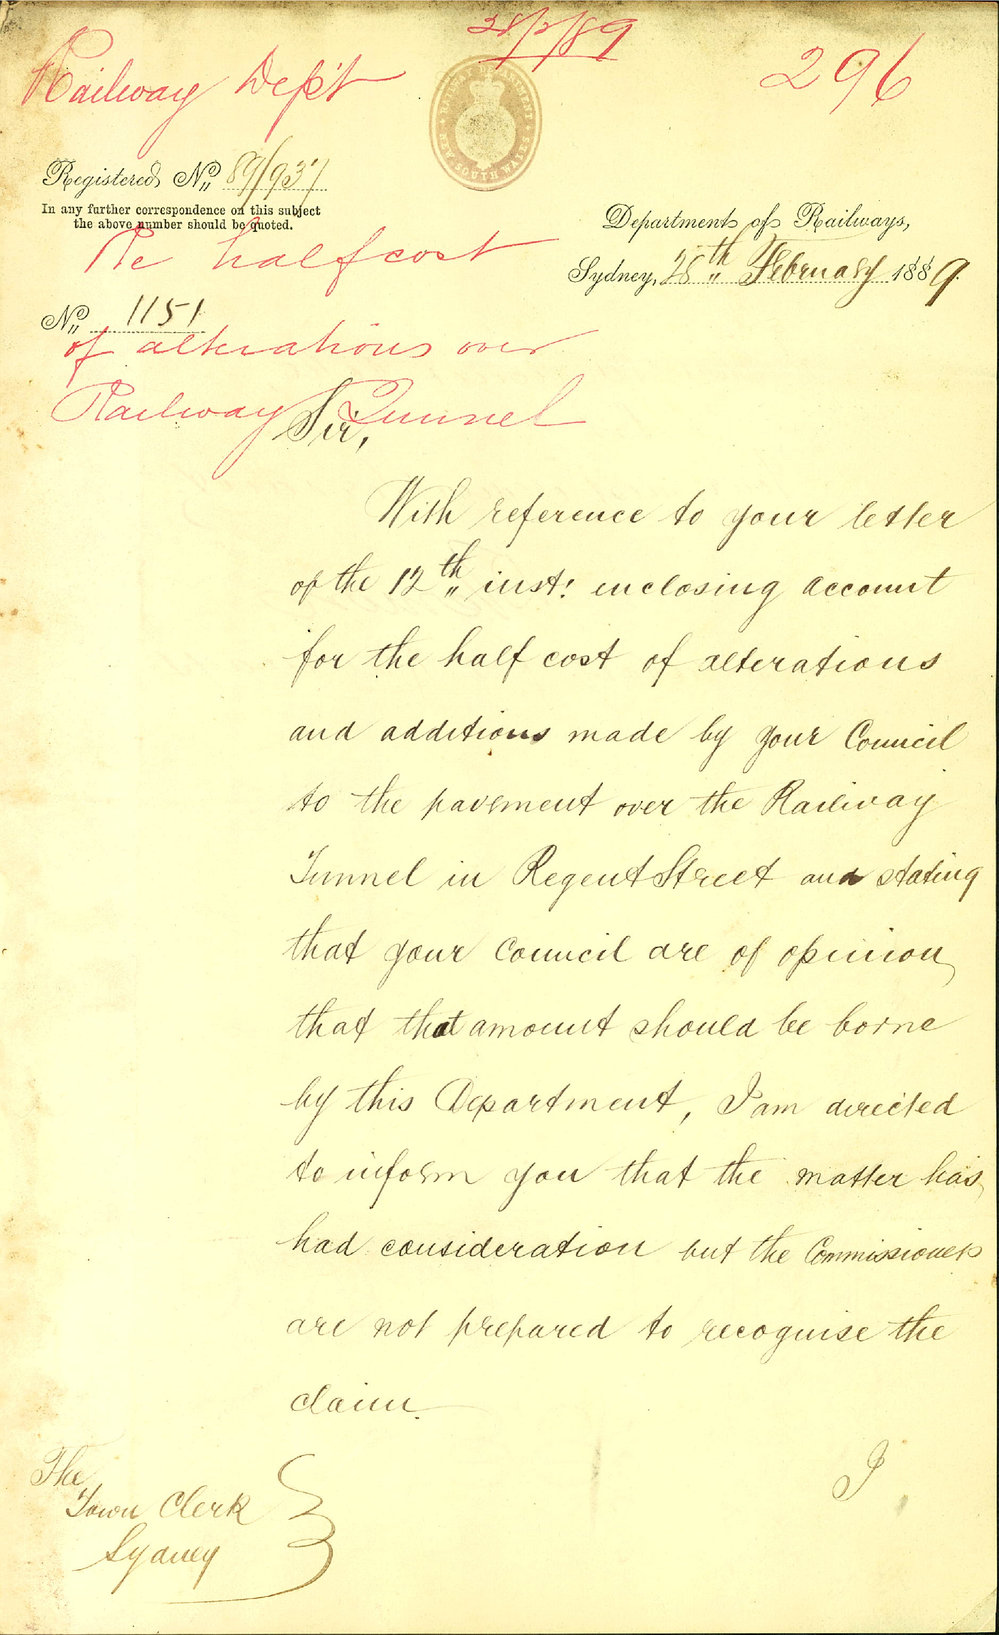 28/2/89
Railway Dep't
296
Registered No. 89/937
In any further correspondence on this subject
the above number should be quoted.
Re half cost
Department of Railways,
Sydney, 28th February 1889.
No. 1151
of alterations over
Railway Tunnel
Sir,
With reference to your letter
of the 12th inst: enclosing account
for the half cost of alterations
and additions made by your Council
to the pavement over the Railway
Tunnel in Regent Street and stating
that your Council are of opinion
that that amount should be borne
by this Department, I am directed
to inform you that the matter has
had consideration but the Commissioners
are not prepared to recognise the
claim.
I
The
Town Clerk
Sydney